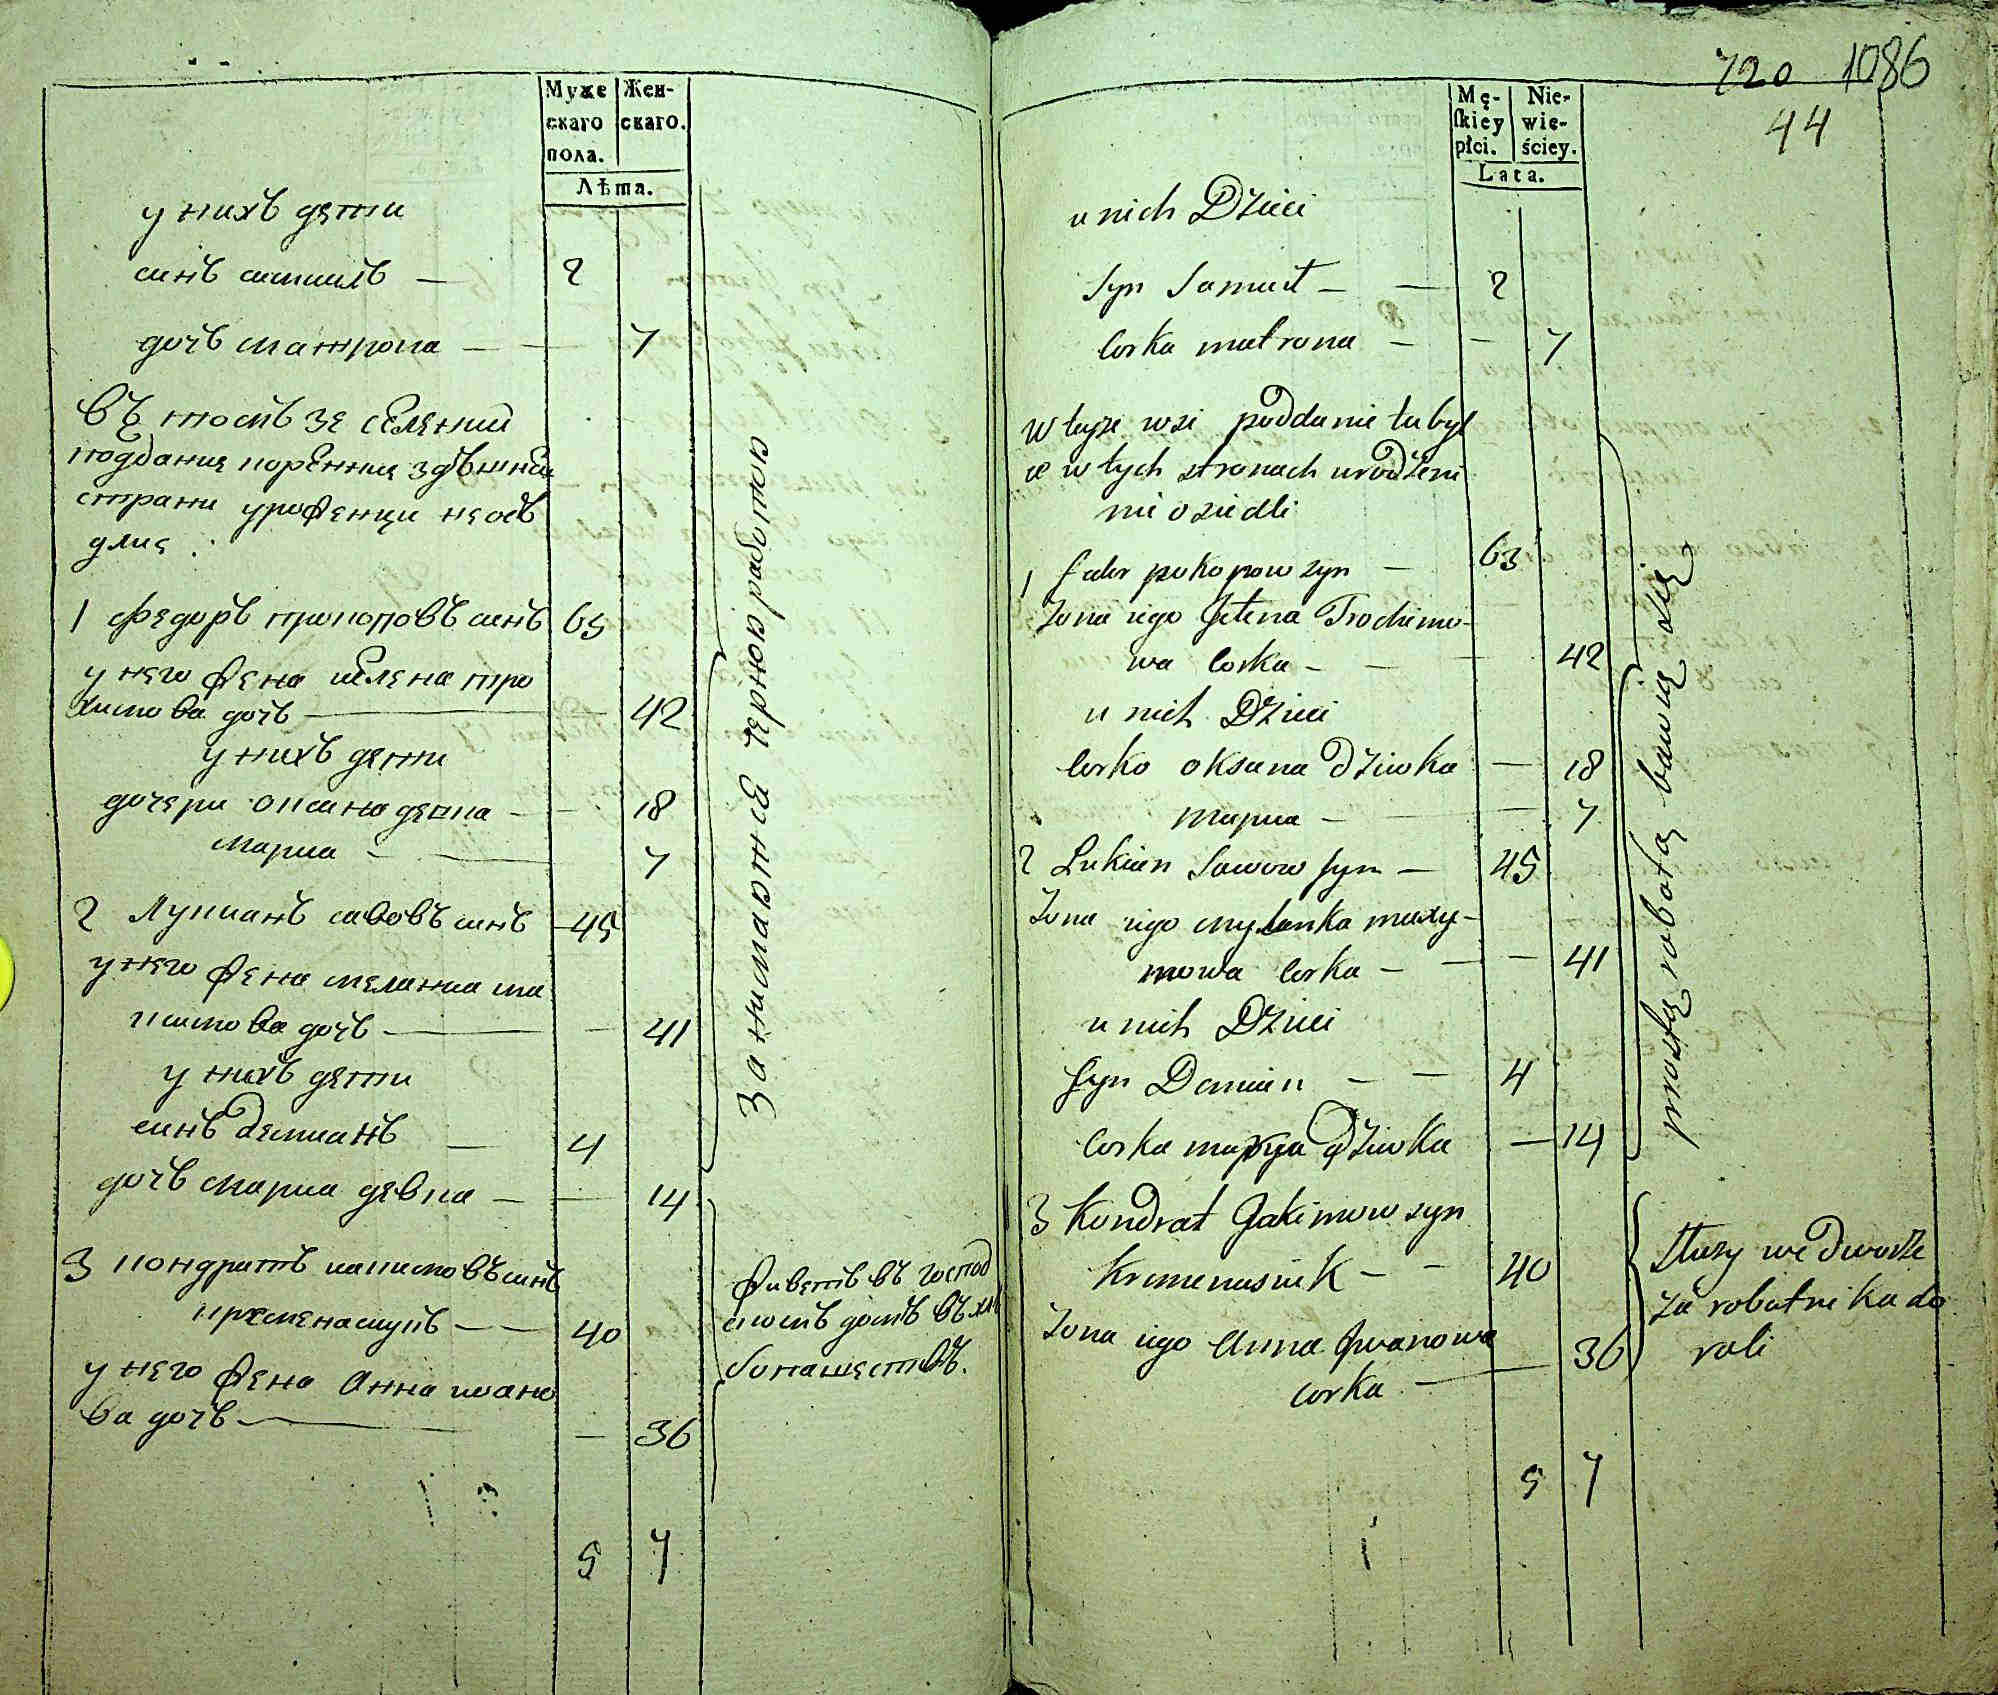 Муже
скаго
пола.
Жен-
скаго.
Лѣта.
у нихъ дети
синъ самуилъ — 2
дочъ матрона — — 7
въ томъ зе селении
поддание коренние здѣшнеи
страни уроженци неосѣ
длие
1 Федоръ прокоповъ синъ 63
у него жена иелена тро
химова дочъ — — 42
у нихъ дети
дочери оксана девка — — 18
мариа — — 7
2 Лукианъ савовъ синъ — 45
у него жена меланиа ма
ксимова дочъ — — 41
у нихъ дети
синъ демианъ — 4
дочъ мариа девка — — 14
3 кондратъ иакимовъ синъ
кременасчукъ — — 40
у него жена Анна ивано
ва дочъ — — 36
5 7
Занимаютне черною работою
живетъ въ господ
скомъ домѣ въ хлѣ
бопашествѣ.
720 1086
44
Mę-
skiey
płci.
Nie-
wie-
ściey.
Lata.
u nich Dzieci
syn Samuel — — 2
Corka matrona — — 7
W teyze wsi poddanie tubyl
ce w tych stronach urodzeni
nie osiedli
1 fedor pokopow syn — 63
Zona iego Jelena Trochimo-
wa Corka — — — 42
u nich Dzieci
Corko oksana Dziwka — 18
мариа — — 7
2 Lukian Sawow syn — 45
Zona iego Mylanka maxy-
mowa Corka — — — 41
u nich Dzieci
syn Demian — — 4
Corka marya Dziwka — 14
3 Kondrat Jakimow syn
Kremenasiuk — — 40
Zona iego Anna Jwanowa
corka — 36
5 7
prostą robotą bawią się
Sluzy we dworze
za robotnika do
roli